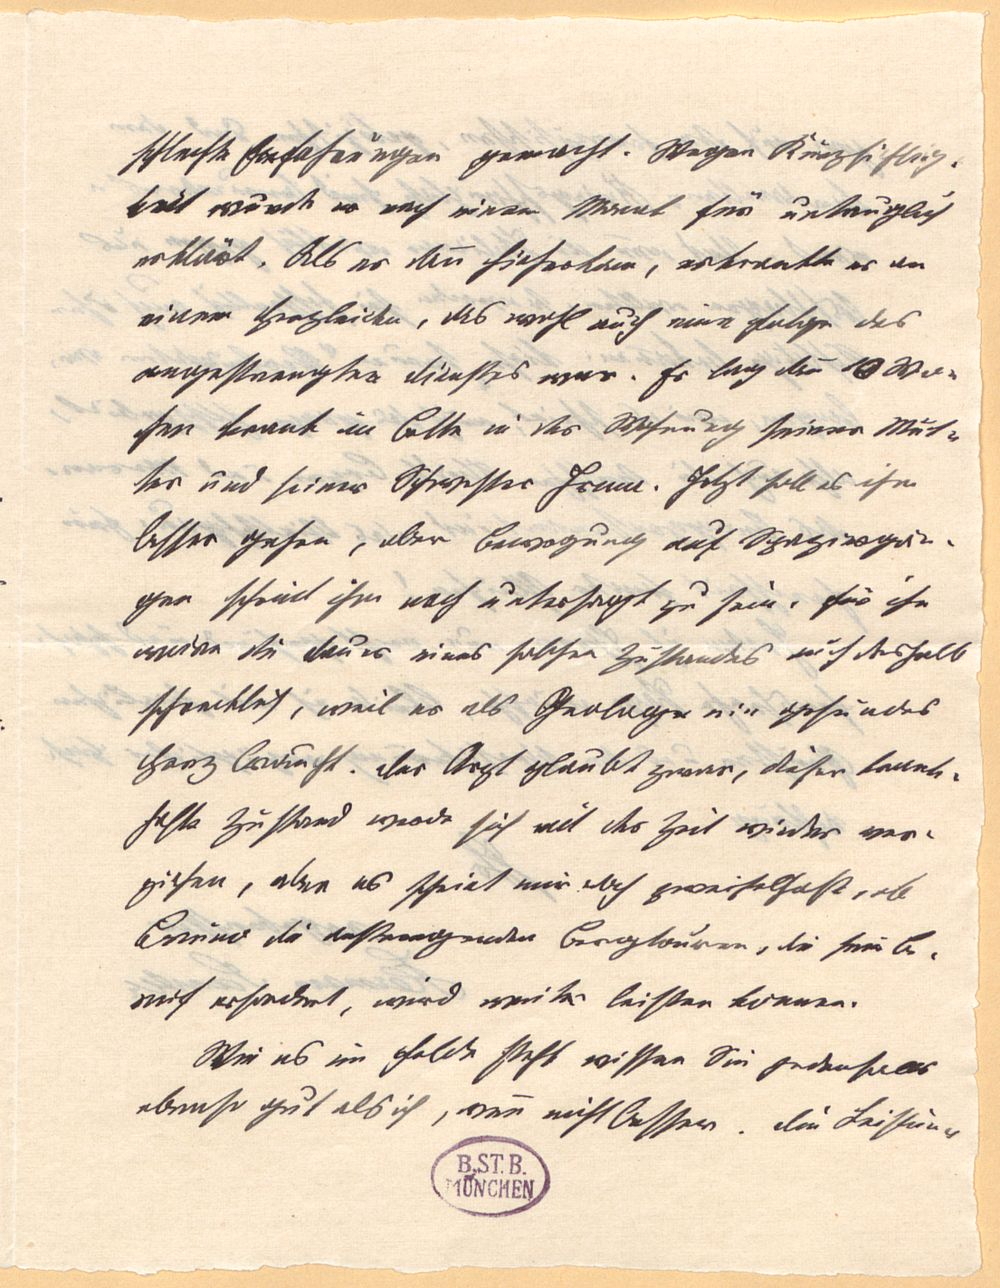 schlechte Erfahrungen gemacht. Wegen Kurzsichtig-
keit wurde er nach einem Monat für untauglich
erklärt. Als er dann hieherkam, erkrankte er an
einem Herzleiden, das wohl auch eine Folge des
angestrengten Dienstes war. Er lag dann Wo-
chen krank im Bette in der Wohnung seiner Mut-
ter und seiner Schwester Irene. Jetzt soll es ihm
besser gehen, aber Bewegung auf Spaziergän-
gen scheint ihm noch untersagt zu sein. Für ihn
wäre die Dauer eines solchen Zustandes auch deshalb
schrecklich, weil er als Geologe ein gesundes
Herz braucht. Der Arzt glaubt zwar, dieser krank-
hafte Zustand werde sich mit der Zeit wieder ver-
ziehen, aber es scheint mir doch zweifelhaft, ob
Bruno die anstrengenden Bergtouren, die sein Be-
ruf erfordert, wird weiter leisten können.
Wie es im Felde steht wissen Sie jedenfalls
ebenso gut als ich, wenn nicht besser. Die Leistun-
B. ST. B.
MÜNCHEN